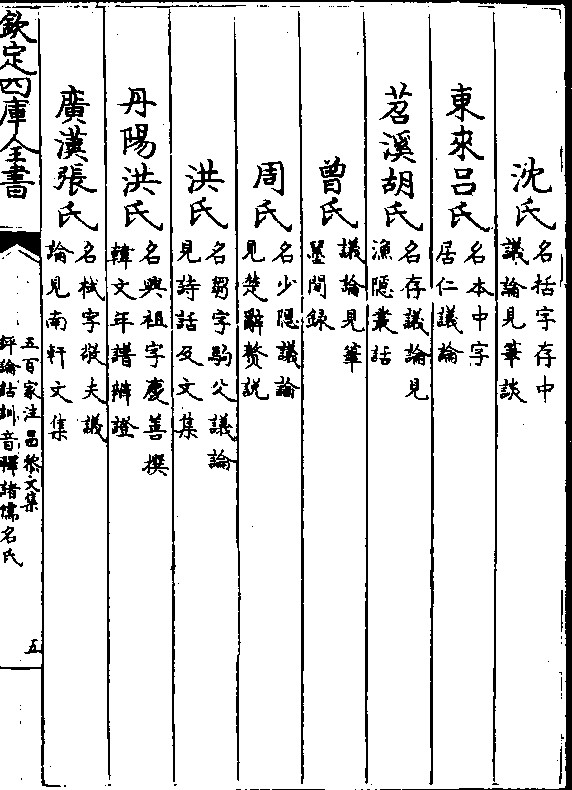 沈氏名括字存中議論見筆談
東來呂氏名本中字居仁議論
苕溪胡氏名存議論見漁隱叢話
曾氏議論見筆墨間錄
周氏名少隱議論見楚辭贅說
洪氏名芻字駒父議論見詩話及文集
丹陽洪氏名興祖字慶善撰韓文年譜辨證
廣漢張氏名栻字敬夫議論見南軒文集
欽定四庫全書
五百家注昌黎文集
評論詁訓音釋諸儒名氏
五